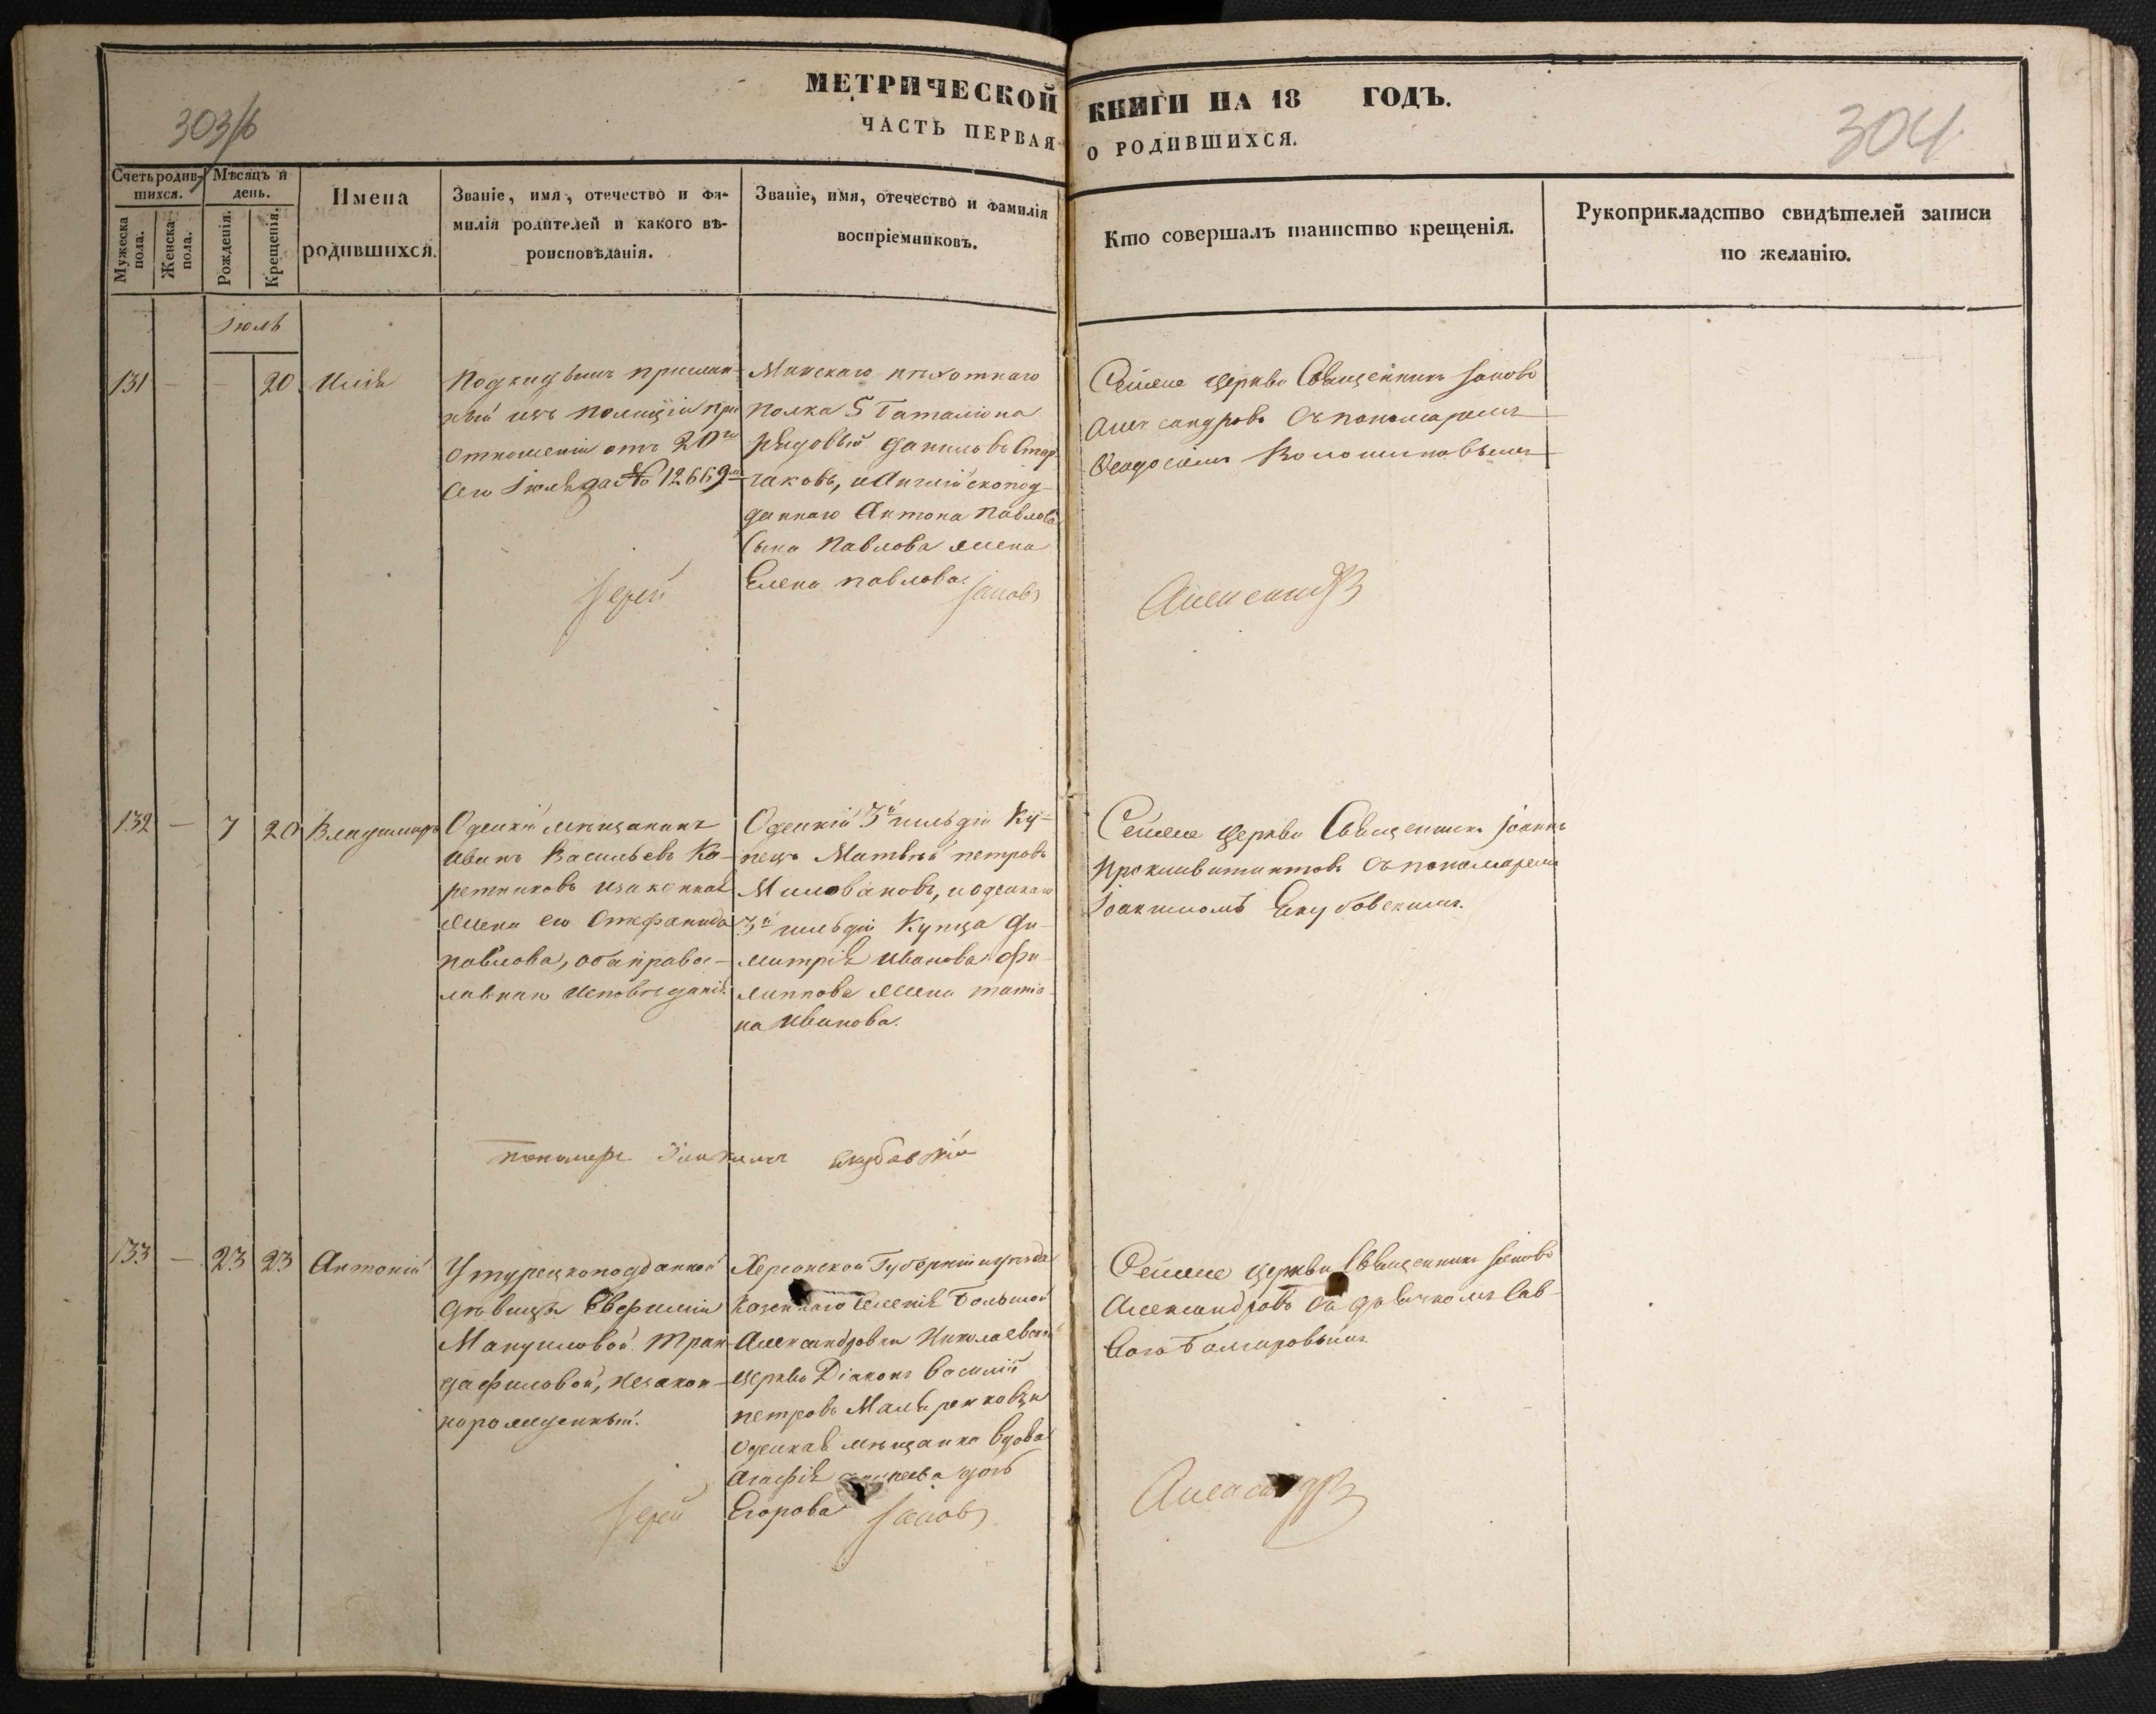 МЕТРИЧЕСКОЙ КНИГИ НА 18 ГОДЪ.
ЧАСТЬ ПЕРВАЯ О РОДИВШИХСЯ.
304
Счетъ родив-
шихся.
Мужеска пола.
Женска пола.
Мѣсяцъ и
день.
Рожденія.
Крещенія.
Имена
родившихся.
Званіе, имя, отечество и фа-
милія родителей и какого вѣ-
роисповѣданія.
Званіе, имя, отечество и фамилія
воспріемниковъ.
Кто совершалъ таинство крещенія.
Рукоприкладство свидѣтелей записи
по желанію.
Іюль
131 — — 20 Илія
Подкидышъ прислан-
ный изъ полиціи при
отношеніи отъ 20го
сего Іюля за № 12669мъ
Минскаго пѣхотнаго
полка 5 баталіона
рядовый Данило
и Англійскопод-
даннаго Антона Павлова
сына Павлова жена
Елена Павлова.
Сей же церкви Священникъ Іаковъ
Александровъ съ пономаремъ
Ѳеодосіемъ Волошиновымъ
Іерей Іаковъ Александровъ
132 — 7 20 Владимиръ
Одескій мѣщанинъ
Иванъ Васильевъ Ка-
ретниковъ и законная
жена его Стефанида
Павлова, оба право-
славнаго исповѣданія.
Одескій 3й гильдіи Ку-
пецъ Матвѣй Петровъ
Миловановъ, и одескаго
3й гильдіи Купца Ди-
митрія Иванова Фи-
липпова жена Татіа-
на Иванова.
Сей же церкви Священникъ Іоаннъ
съ пономаремъ
Іоакимомъ Екубовскимъ.
пономарь Іоакимъ Екубовскій
133 — 23 23 Антоній
У турецкоподданной
дѣвицы Евфиміи
Мануиловой Тран-
дафиловой, незакон-
норожденный.
Херсонской Губерніи и уѣзда
казеннаго селенія Большой
Александровки Николаевской
церкви Діаконъ Василій
Петровъ
Одеская мѣщанка вдова
Агафія дочь
Егорова
Сей же церкви Священникъ Іаковъ
Александровъ съ дьячкомъ Сав-
вою Болгаровымъ.
Іерей Іаковъ Александровъ